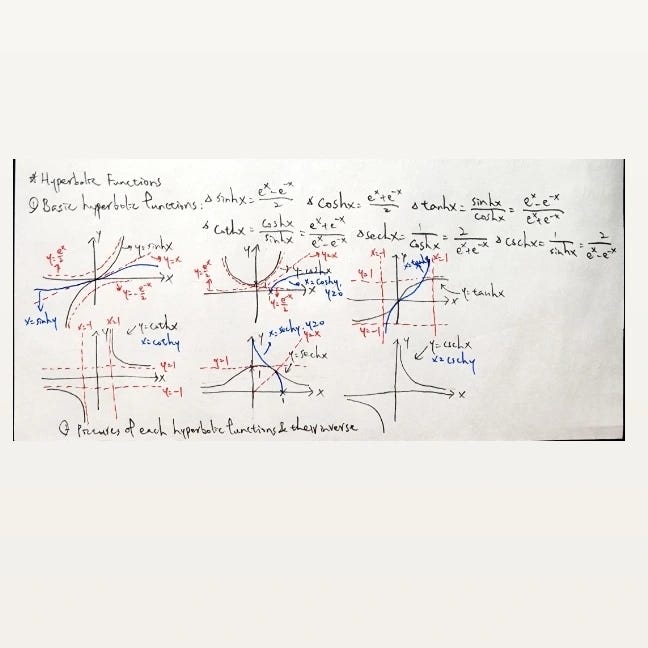 * Hyperbolic Functions
① Basic hyperbolic functions: △ sinhx = (e^x - e^-x)/2 △ coshx = (e^x + e^-x)/2 △ tanhx = sinhx/coshx = (e^x - e^-x)/(e^x + e^-x)
△ cothx = coshx/sinhx = (e^x + e^-x)/(e^x - e^-x) △ sechx = 1/coshx = 2/(e^x + e^-x) △ cschx = 1/sinhx = 2/(e^x - e^-x)
y = e^x/2 y y = sinhx y = x x y = -e^-x/2 x = sinhy
y = e^x/2 y y = x y = coshx x = coshy, y≥0 x y = e^-x/2
x = -1 y x = tanhy x = 1 y = 1 y = tanhx x y = -1
x = -1 x = 1 y y = cothx x = cothy y = 1 x y = -1
y x = sechy, y≥0 y = x y = 1 y = sechx 1 x
y y = cschx x = cschy x
① Pictures of each hyperbolic functions & their inverse